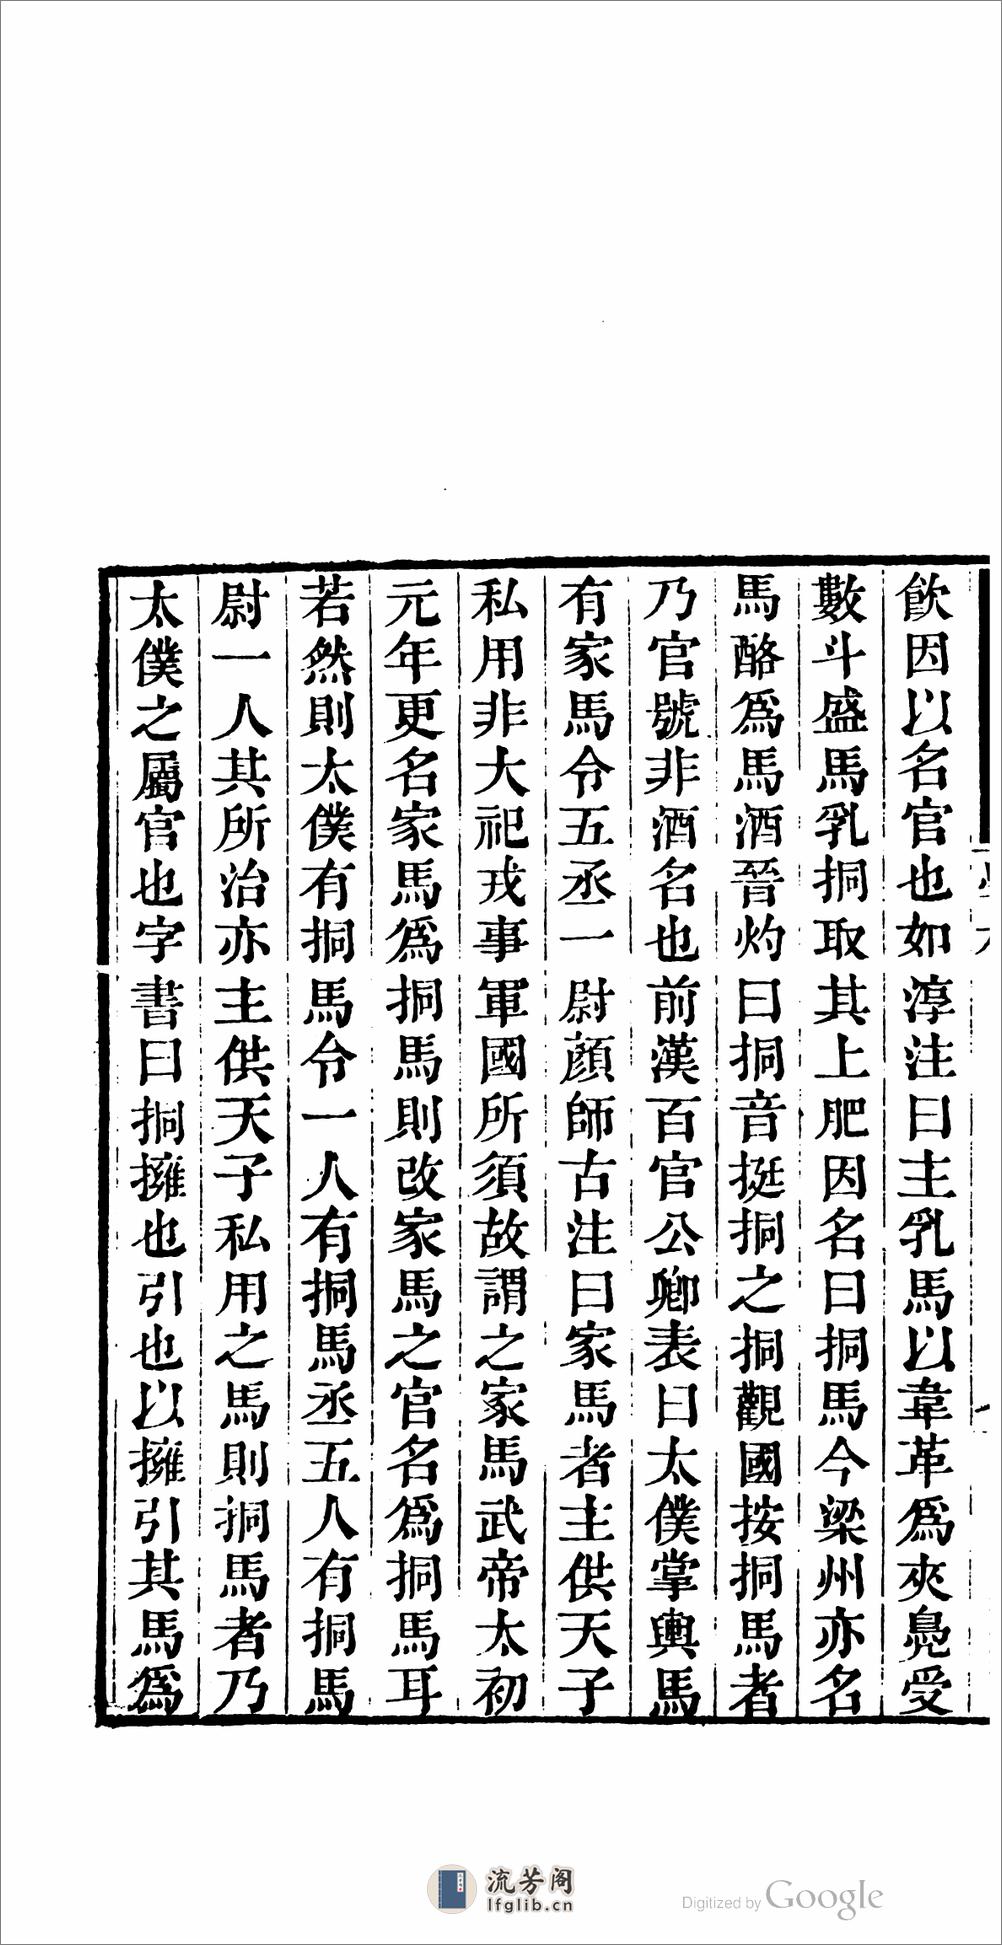 飲因以名官也如淳注曰主乳馬以韋革爲夾㲋受
數斗盛馬乳挏取其上肥因名曰挏馬今梁州亦名
馬酪爲馬酒晉灼曰挏音挺挏之挏觀國按挏馬者
乃官號非酒名也前漢百官公卿表曰太僕掌輿馬
有家馬令五丞一尉顏師古注曰家馬者主供天子
私用非大祀戎事軍國所須故謂之家馬武帝太初
元年更名家馬爲挏馬則改家馬之官名爲挏馬耳
若然則太僕有挏馬令一人有挏馬丞五人有挏馬
尉一人其所治亦主供天子私用之馬則挏馬者乃
太僕之屬官也字書曰挏擁也引也以擁引其馬爲
流芳阁
lfglib.cn
Digitized by Google